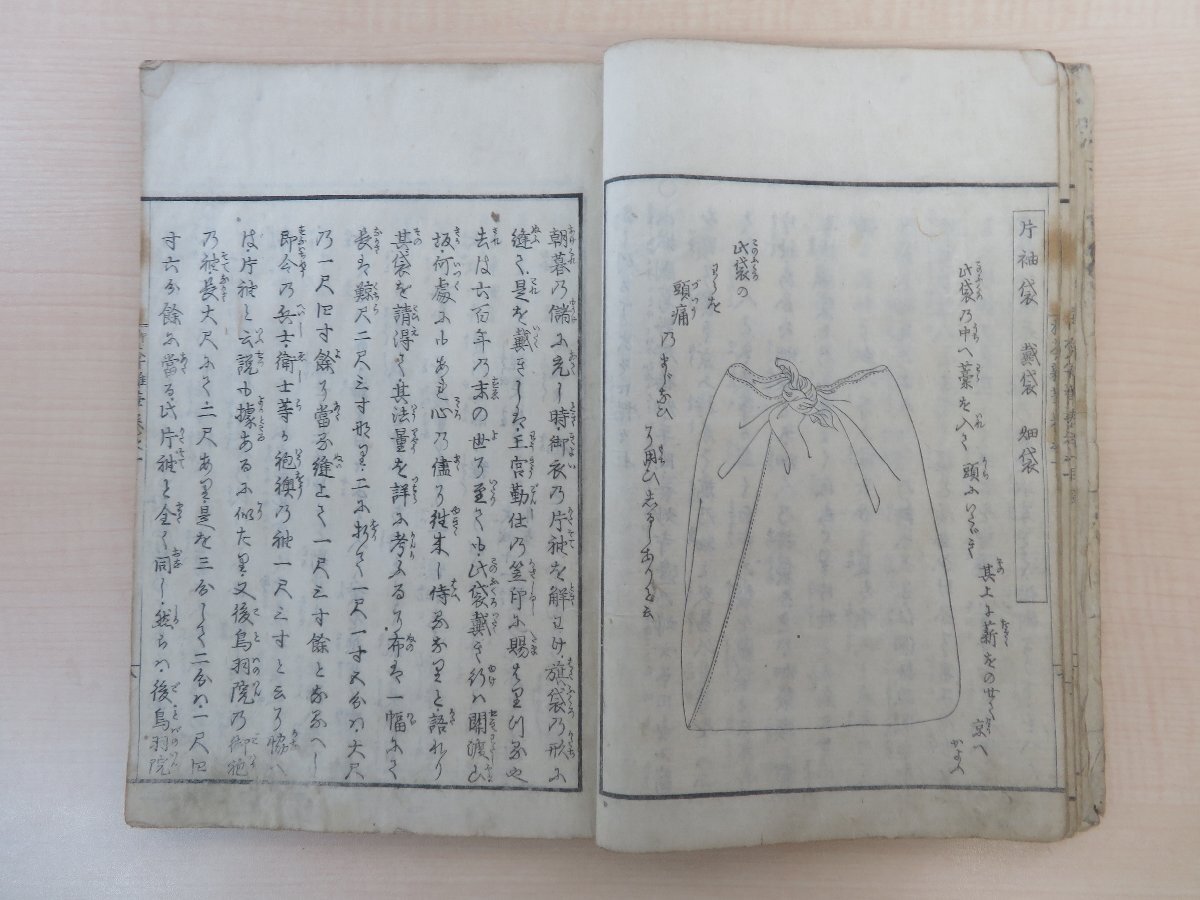 片袖袋 戴袋 畑袋
此袋乃中へ藁を入て頭にいたゝき
其上に薪をのせて京へ
かよふ
此袋の
わらを
頭痛乃まじなひ
に用ひしるしありと云
朝暮乃儲に充し時御衣乃片袖を解わけ旗袋乃形に
縫て是を戴きしは王宮勤仕乃笠印に賜はり
去は六百年の末の世に至ても此袋戴き行は関渡山
坂何處にもあれ心乃儘に往来し侍るなりと語れり
其袋を請得て其法量を詳に考ふるに布は一幅にて
長は鯨尺二尺三寸形里二に折て一尺一寸五分は大尺
乃一尺四寸餘に當る縫上て一尺三寸餘となるへし
即今乃兵士衛士等か袍襖乃袖一尺三寸と云に脇へ
ば片袖と云説も據あるに似たり又後鳥羽院乃御袍
乃袖長大尺にて二尺あり是を三分して二分は一尺四
寸六分餘に當る此片袖と全く同し然らは後鳥羽院